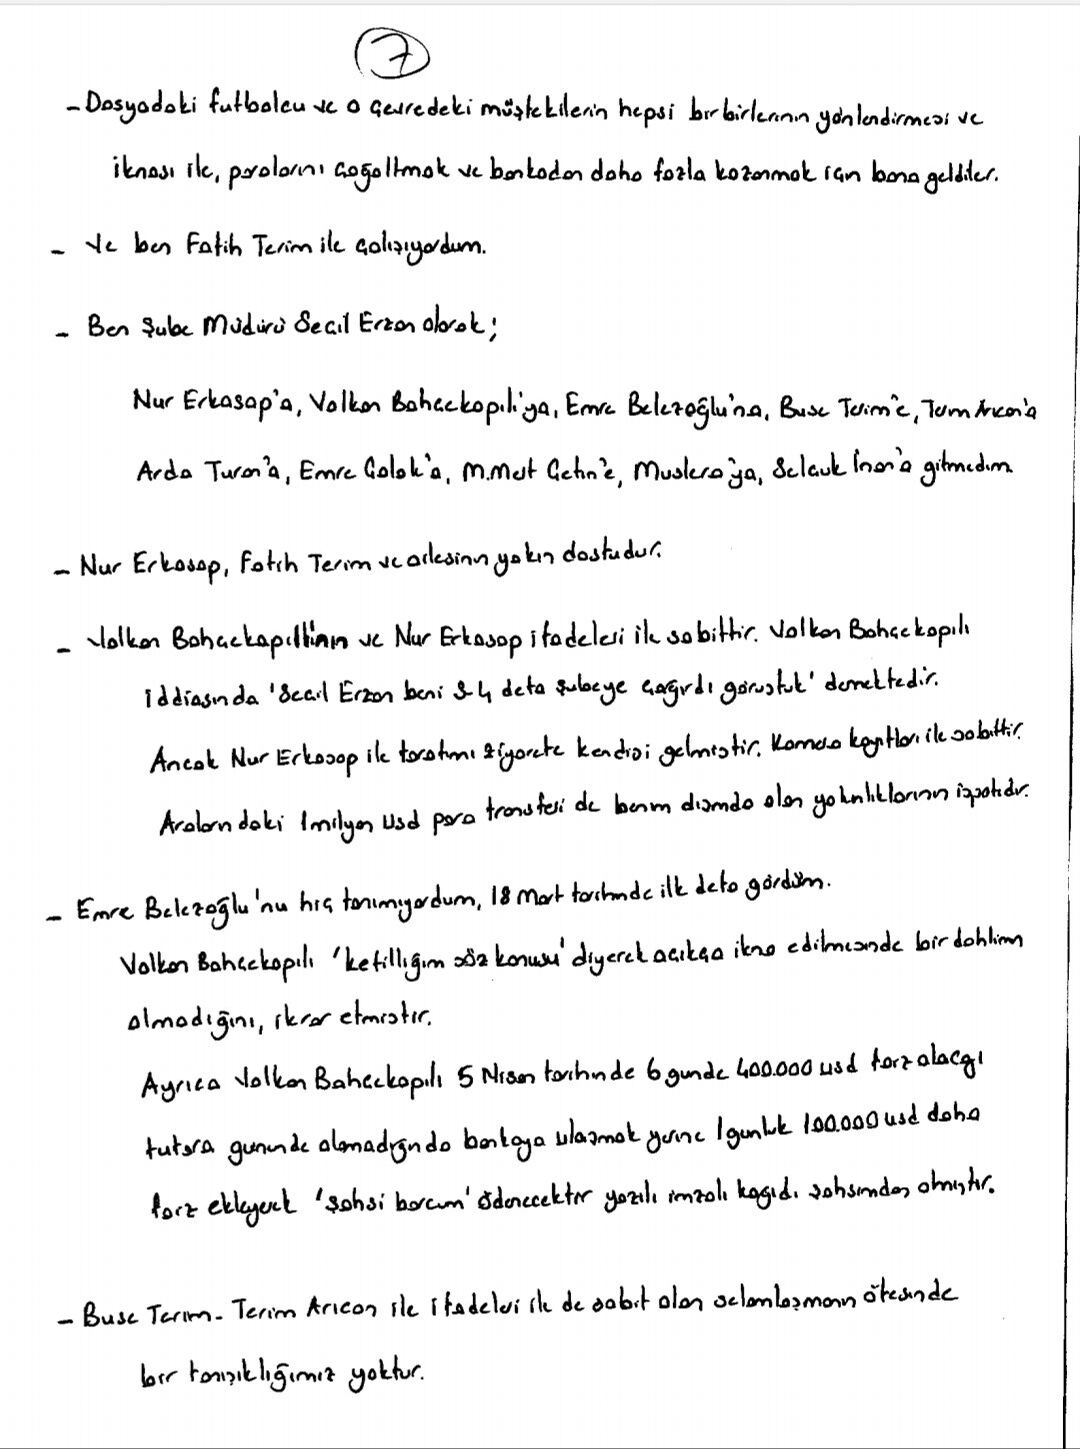 7
- Dosyadaki futbolcu ve o çevredeki müştekilerin hepsi birbirlerinin yönlendirmesi ve
iknası ile, paralarını çoğaltmak ve bankadan daha fazla kazanmak için bana geldiler.
- Ve ben Fatih Terim ile çalışıyordum.
- Ben Şube Müdürü Seçil Erzan olarak;
Nur Erkasap'a, Volkan Bahçekapılı'ya, Emre Belezoğlu'na, Buse Terim'e, Terim Arıcan'a
Arda Turan'a, Emre Çolak'a, M.Mert Çetin'e, Muslera'ya, Selçuk İnan'a gitmedim
- Nur Erkasap, Fatih Terim ve ailesinin yakın dostudur.
- Volkan Bahçekapılının ve Nur Erkasap ifadeleri ile sabittir. Volkan Bahçekapılı
iddiasında 'Seçil Erzan beni 3-4 defa şubeye çağırdı görüştük' demektedir.
Ancak Nur Erkasap ile tarafımı ziyarete kendisi gelmiştir. Kamera kayıtları ile sabittir.
Aralarındaki 1 milyon Usd para transferi de benim dışımda olan yakınlıklarının ispatıdır.
- Emre Belezoğlu'nu hiç tanımıyordum, 18 Mart tarihinde ilk defa gördüm.
Volkan Bahçekapılı 'kefilliğim söz konusu' diyerek açıkça ikna edilmesinde bir dahlim
olmadığını, ikrar etmiştir.
Ayrıca Volkan Bahçekapılı 5 Nisan tarihinde 6 günde 400.000 usd farz alacağı
tutara gününde alamadığında bankaya ulaşmak yerine 1 günlük 100.000 usd daha
farz ekleyerek 'şahsi borcum' ödenecektir yazılı imzalı kağıdı şahsımdan almıştır.
- Buse Terim - Terim Arıcan ile ifadeleri ile de sabit olan selamlaşmanın ötesinde
bir tanışıklığımız yoktur.